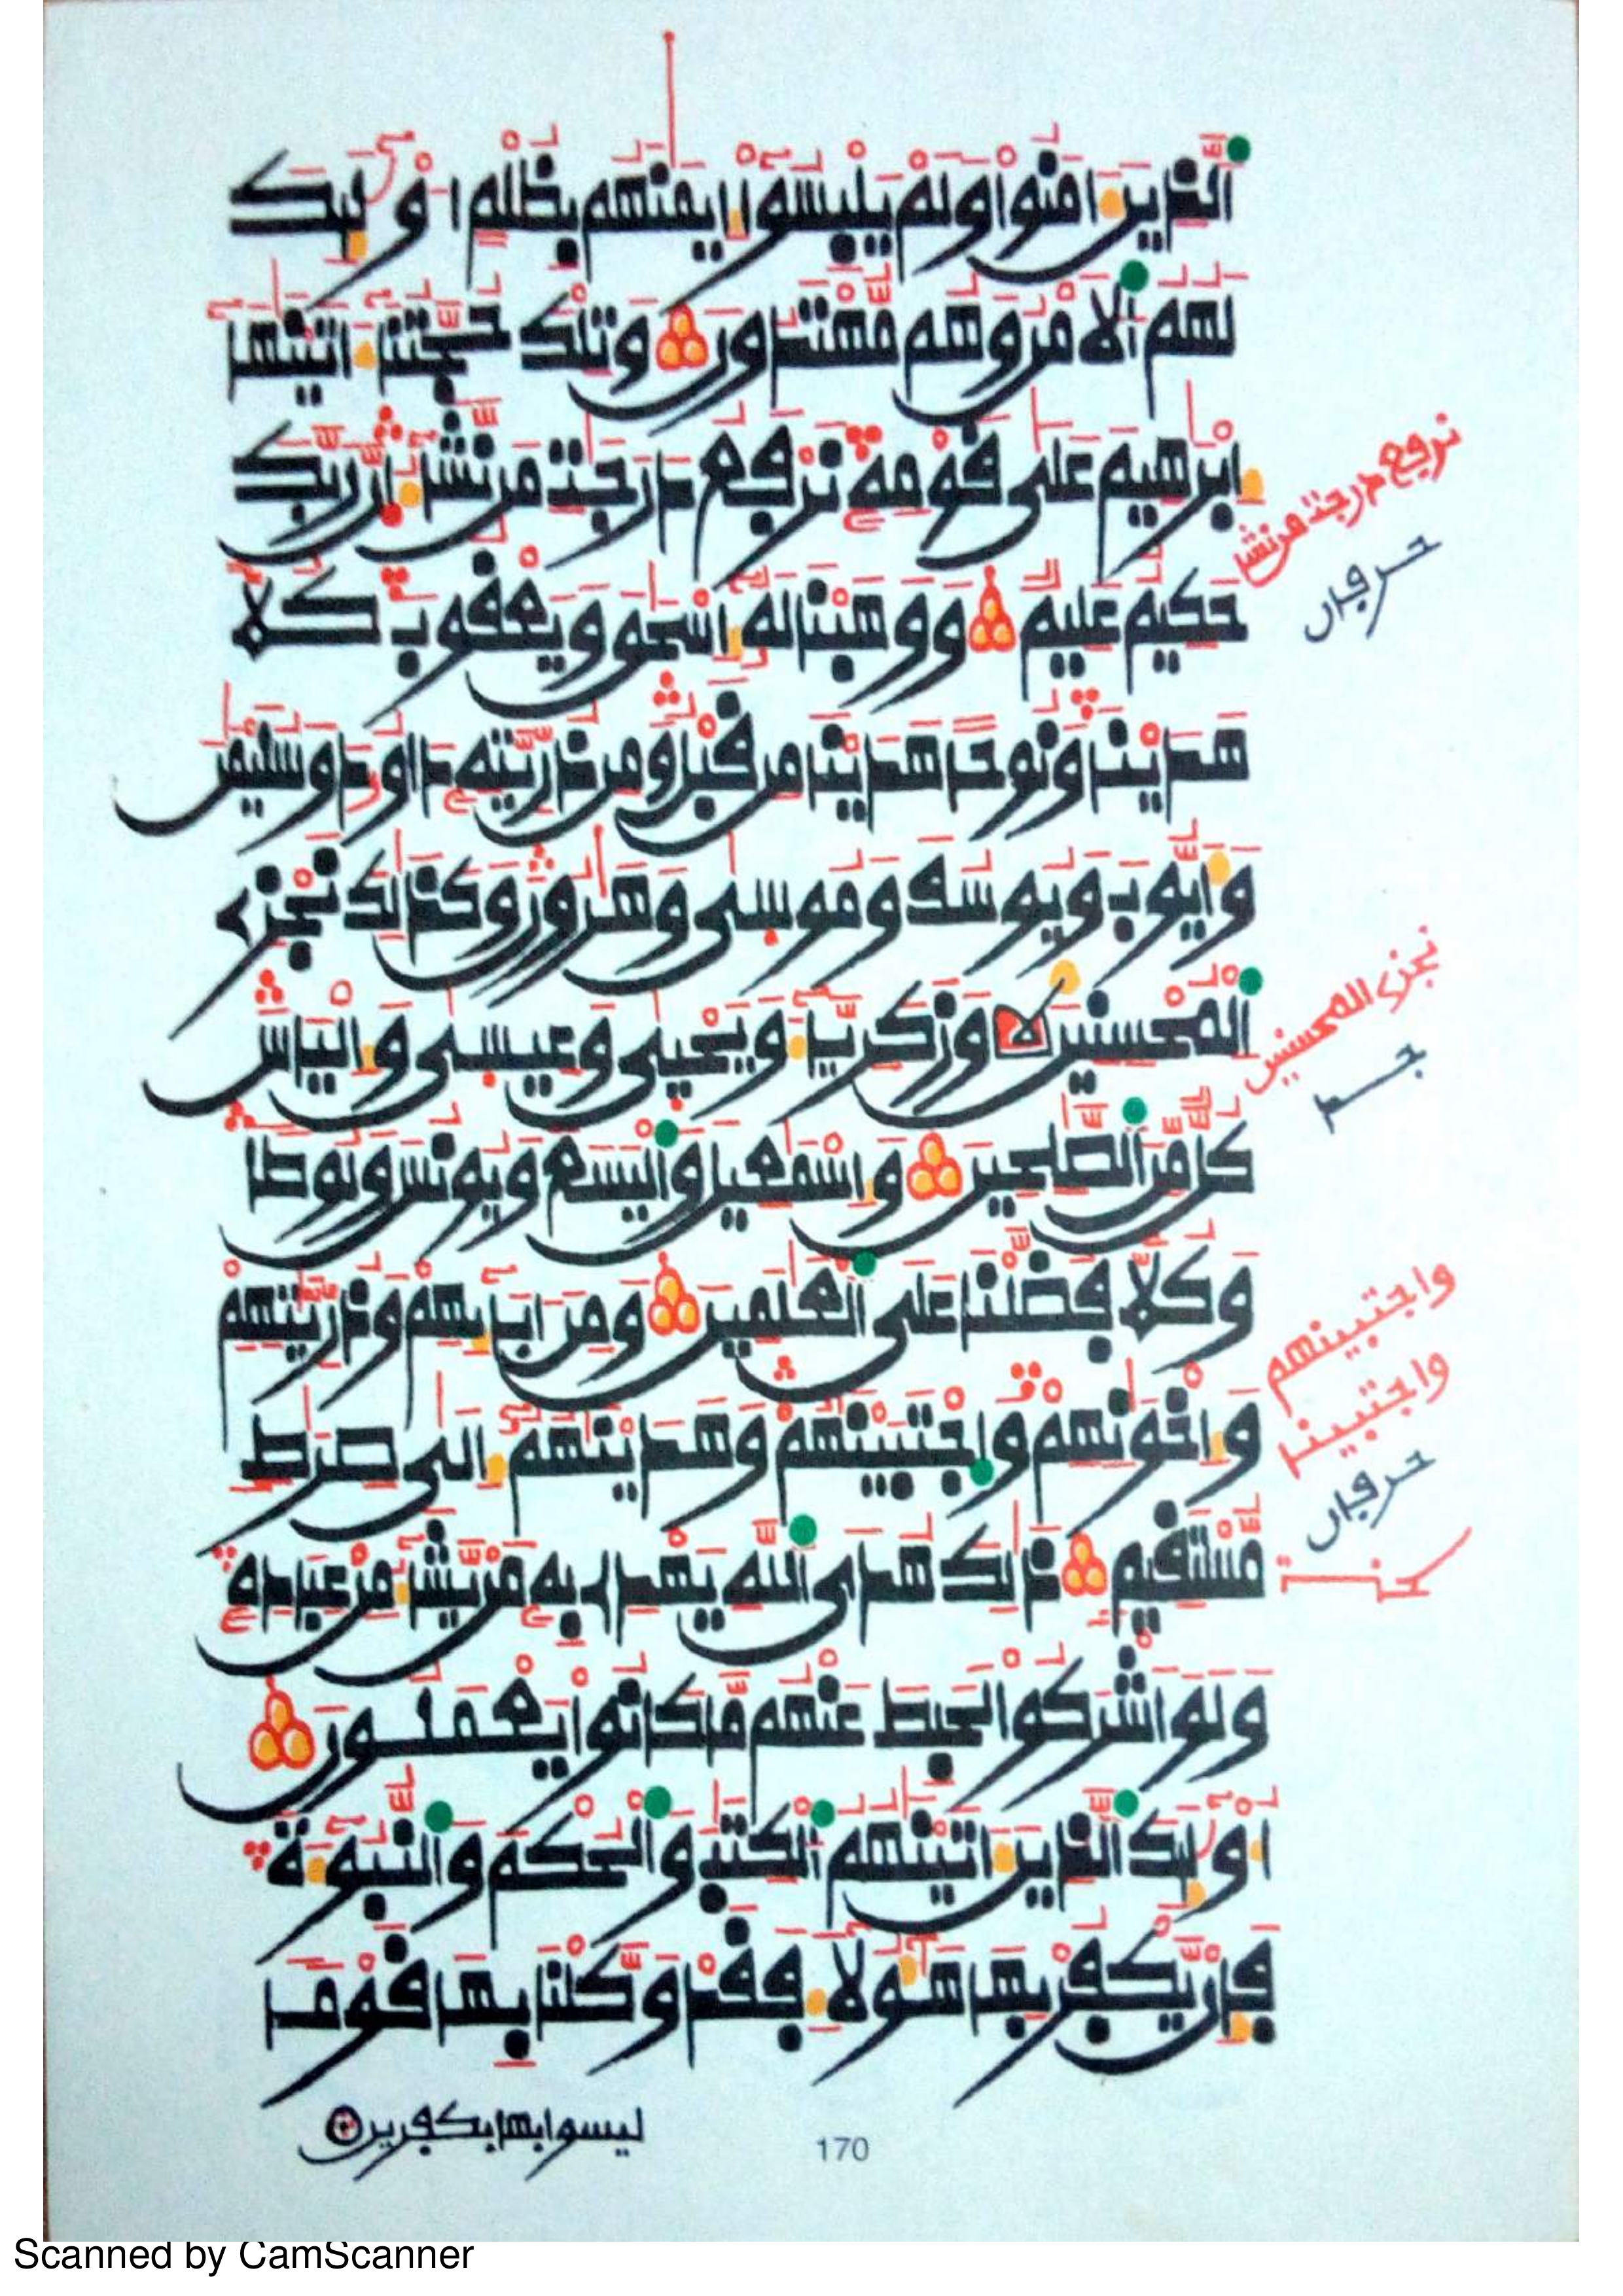 الذين ءامنوا ولم يلبسوا إيمنهم بظلم أولئك
لهم الأمن وهم مهتدون وتلك حجتنا ءاتينها
إبرهيم على قومه نرفع درجت من نشاء إن ربك
حكيم عليم ووهبنا له إسحق ويعقوب كلا
هدينا ونوحا هدينا من قبل ومن ذريته داود وسليمن
وأيوب ويوسف وموسى وهرون وكذلك نجزي
المحسنين وزكريا ويحيى وعيسى وإلياس
كل من الصلحين وإسمعيل واليسع ويونس ولوطا
وكلا فضلنا على العلمين ومن ءابائهم وذريتهم
وإخونهم واجتبينهم وهدينهم إلى صرط
مستقيم ذلك هدى الله يهدي به من يشاء من عباده
ولو أشركوا لحبط عنهم ما كانوا يعملون
أولئك الذين ءاتينهم الكتب والحكم والنبوءة
فإن يكفر بها هؤلاء فقد وكلنا بها قوما
ليسوا بها بكفرين
170
نرفع درجت من نشا
حرفان
نجزي المحسنين
واجتبينهم
واجتبينا
حرفان
Scanned by CamScanner